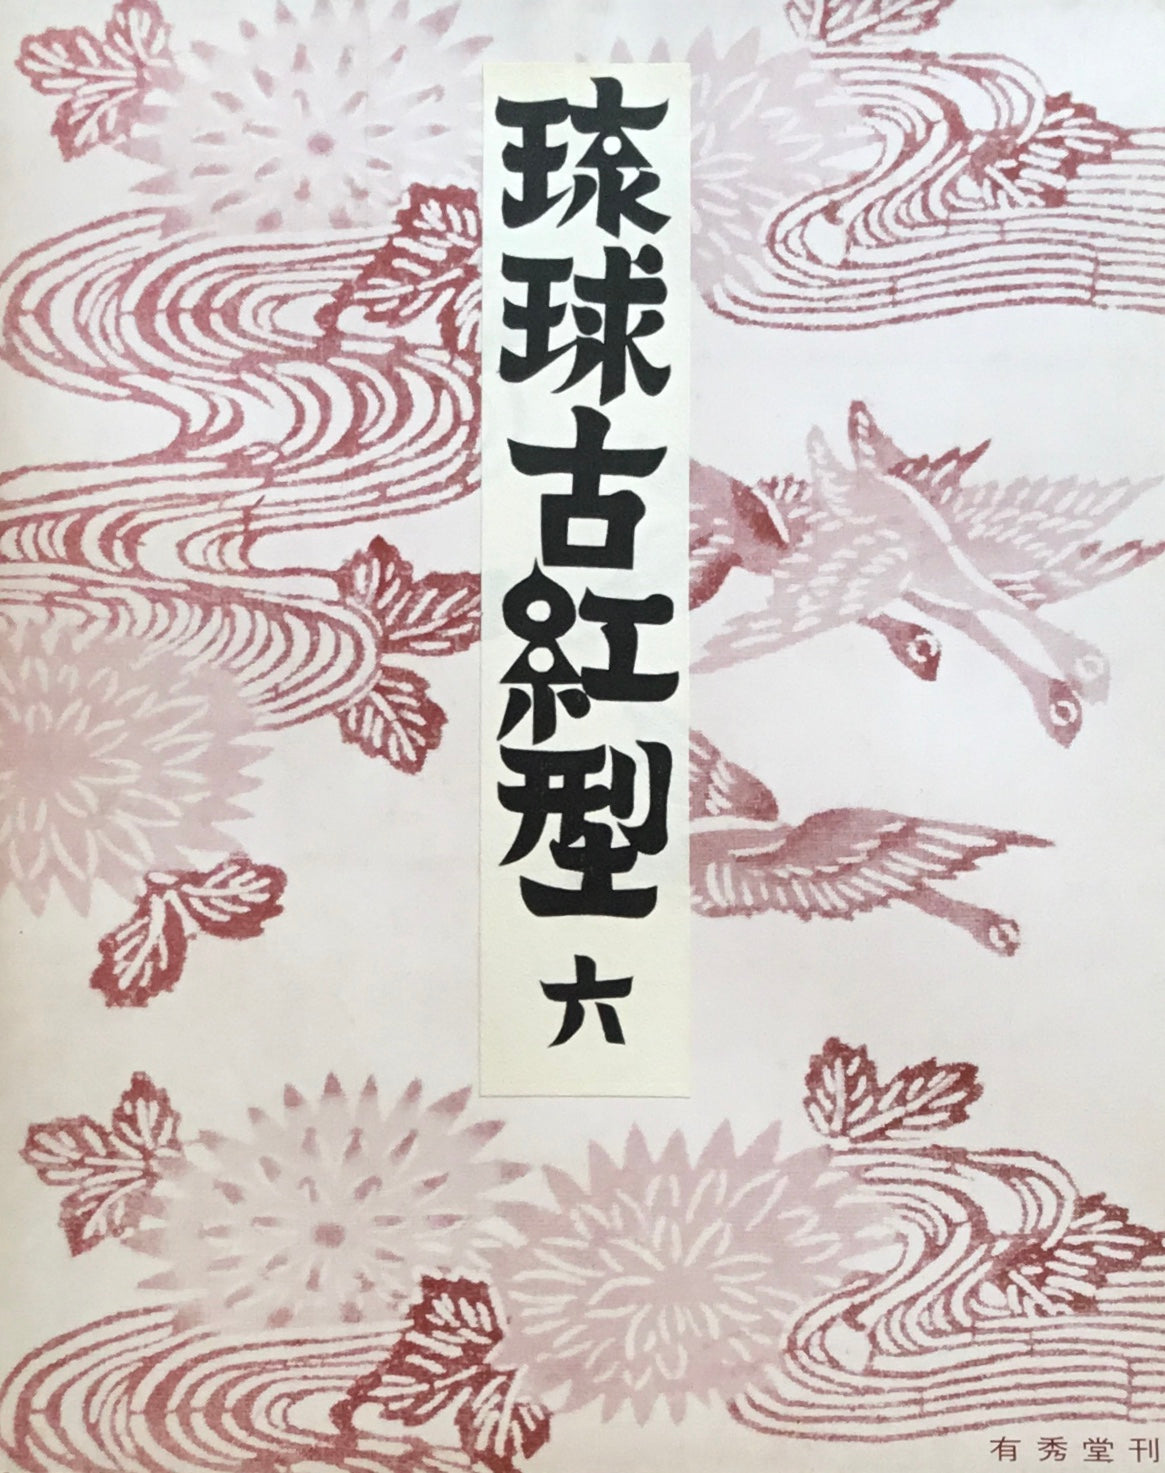 琉球古紅型 六
有秀堂刊